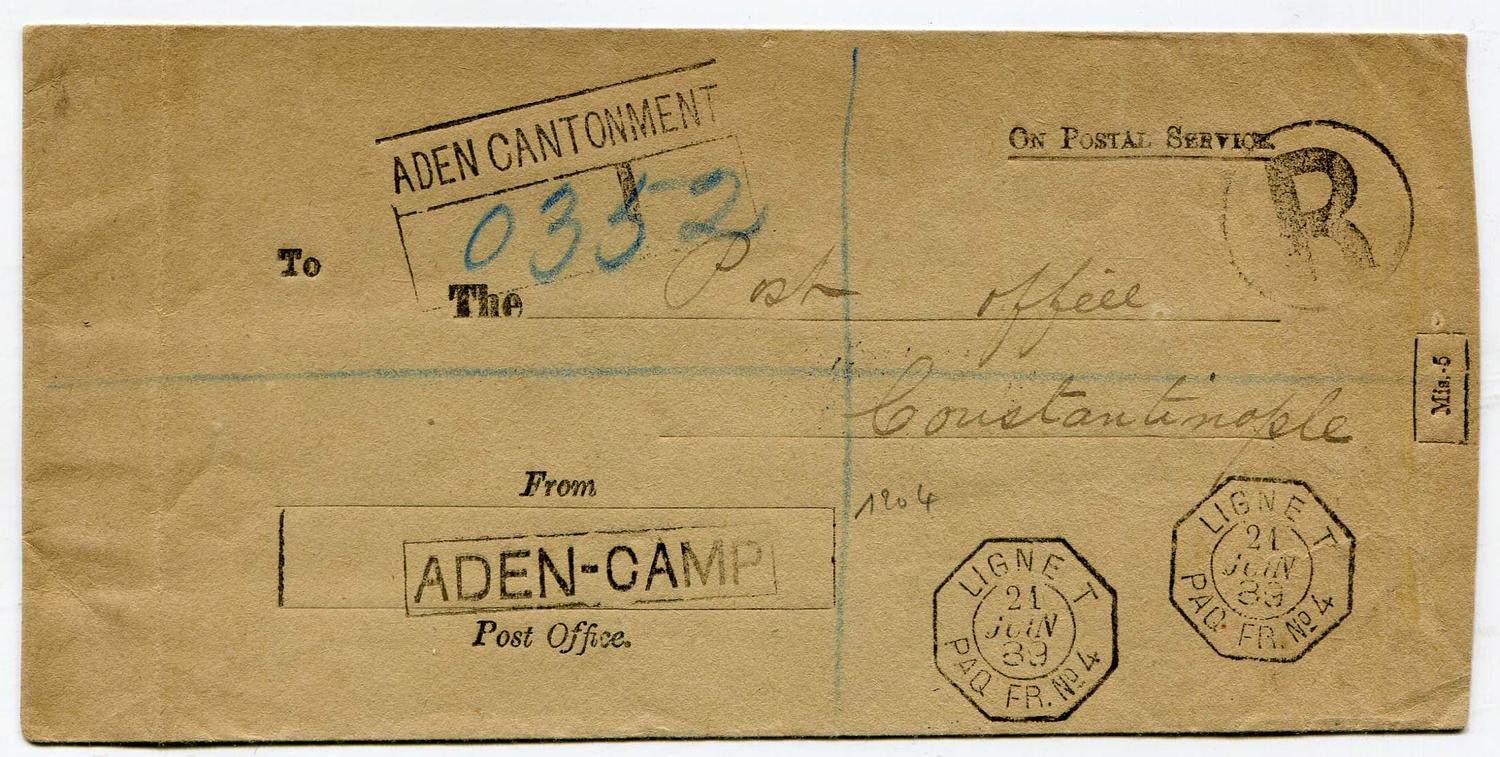 ADEN CANTONMENT
0352
ON POSTAL SERVICE.
R
To
The Post office
Constantinople
Mis.-5
From
ADEN-CAMP
Post Office.
1204
LIGNE T
21
JUIN
89
PAQ. FR. No 4
LIGNE T
21
JUIN
89
PAQ. FR. No 4